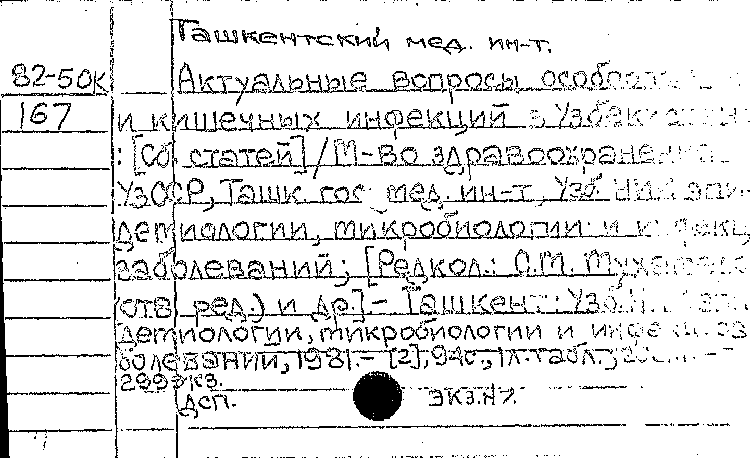 Ташкентский мед. ин-т.
82-50к Актуальные вопросы
167 и кишечных инфекций в
: [Сб. статей] / М-во здравоохранения
УзССР, Ташк. гос. мед. ин-т, Узб. НИИ эпи-
демиологии, микробиологии и
заболеваний; [Редкол.:
(отв. ред.) и др.]. - Ташкент: Узб.
демиологии, микробиологии и
болеваний, 1981. - [2], 94с., 1л. табл.;
299экз.
ДСП. ЭКЗ.№7.